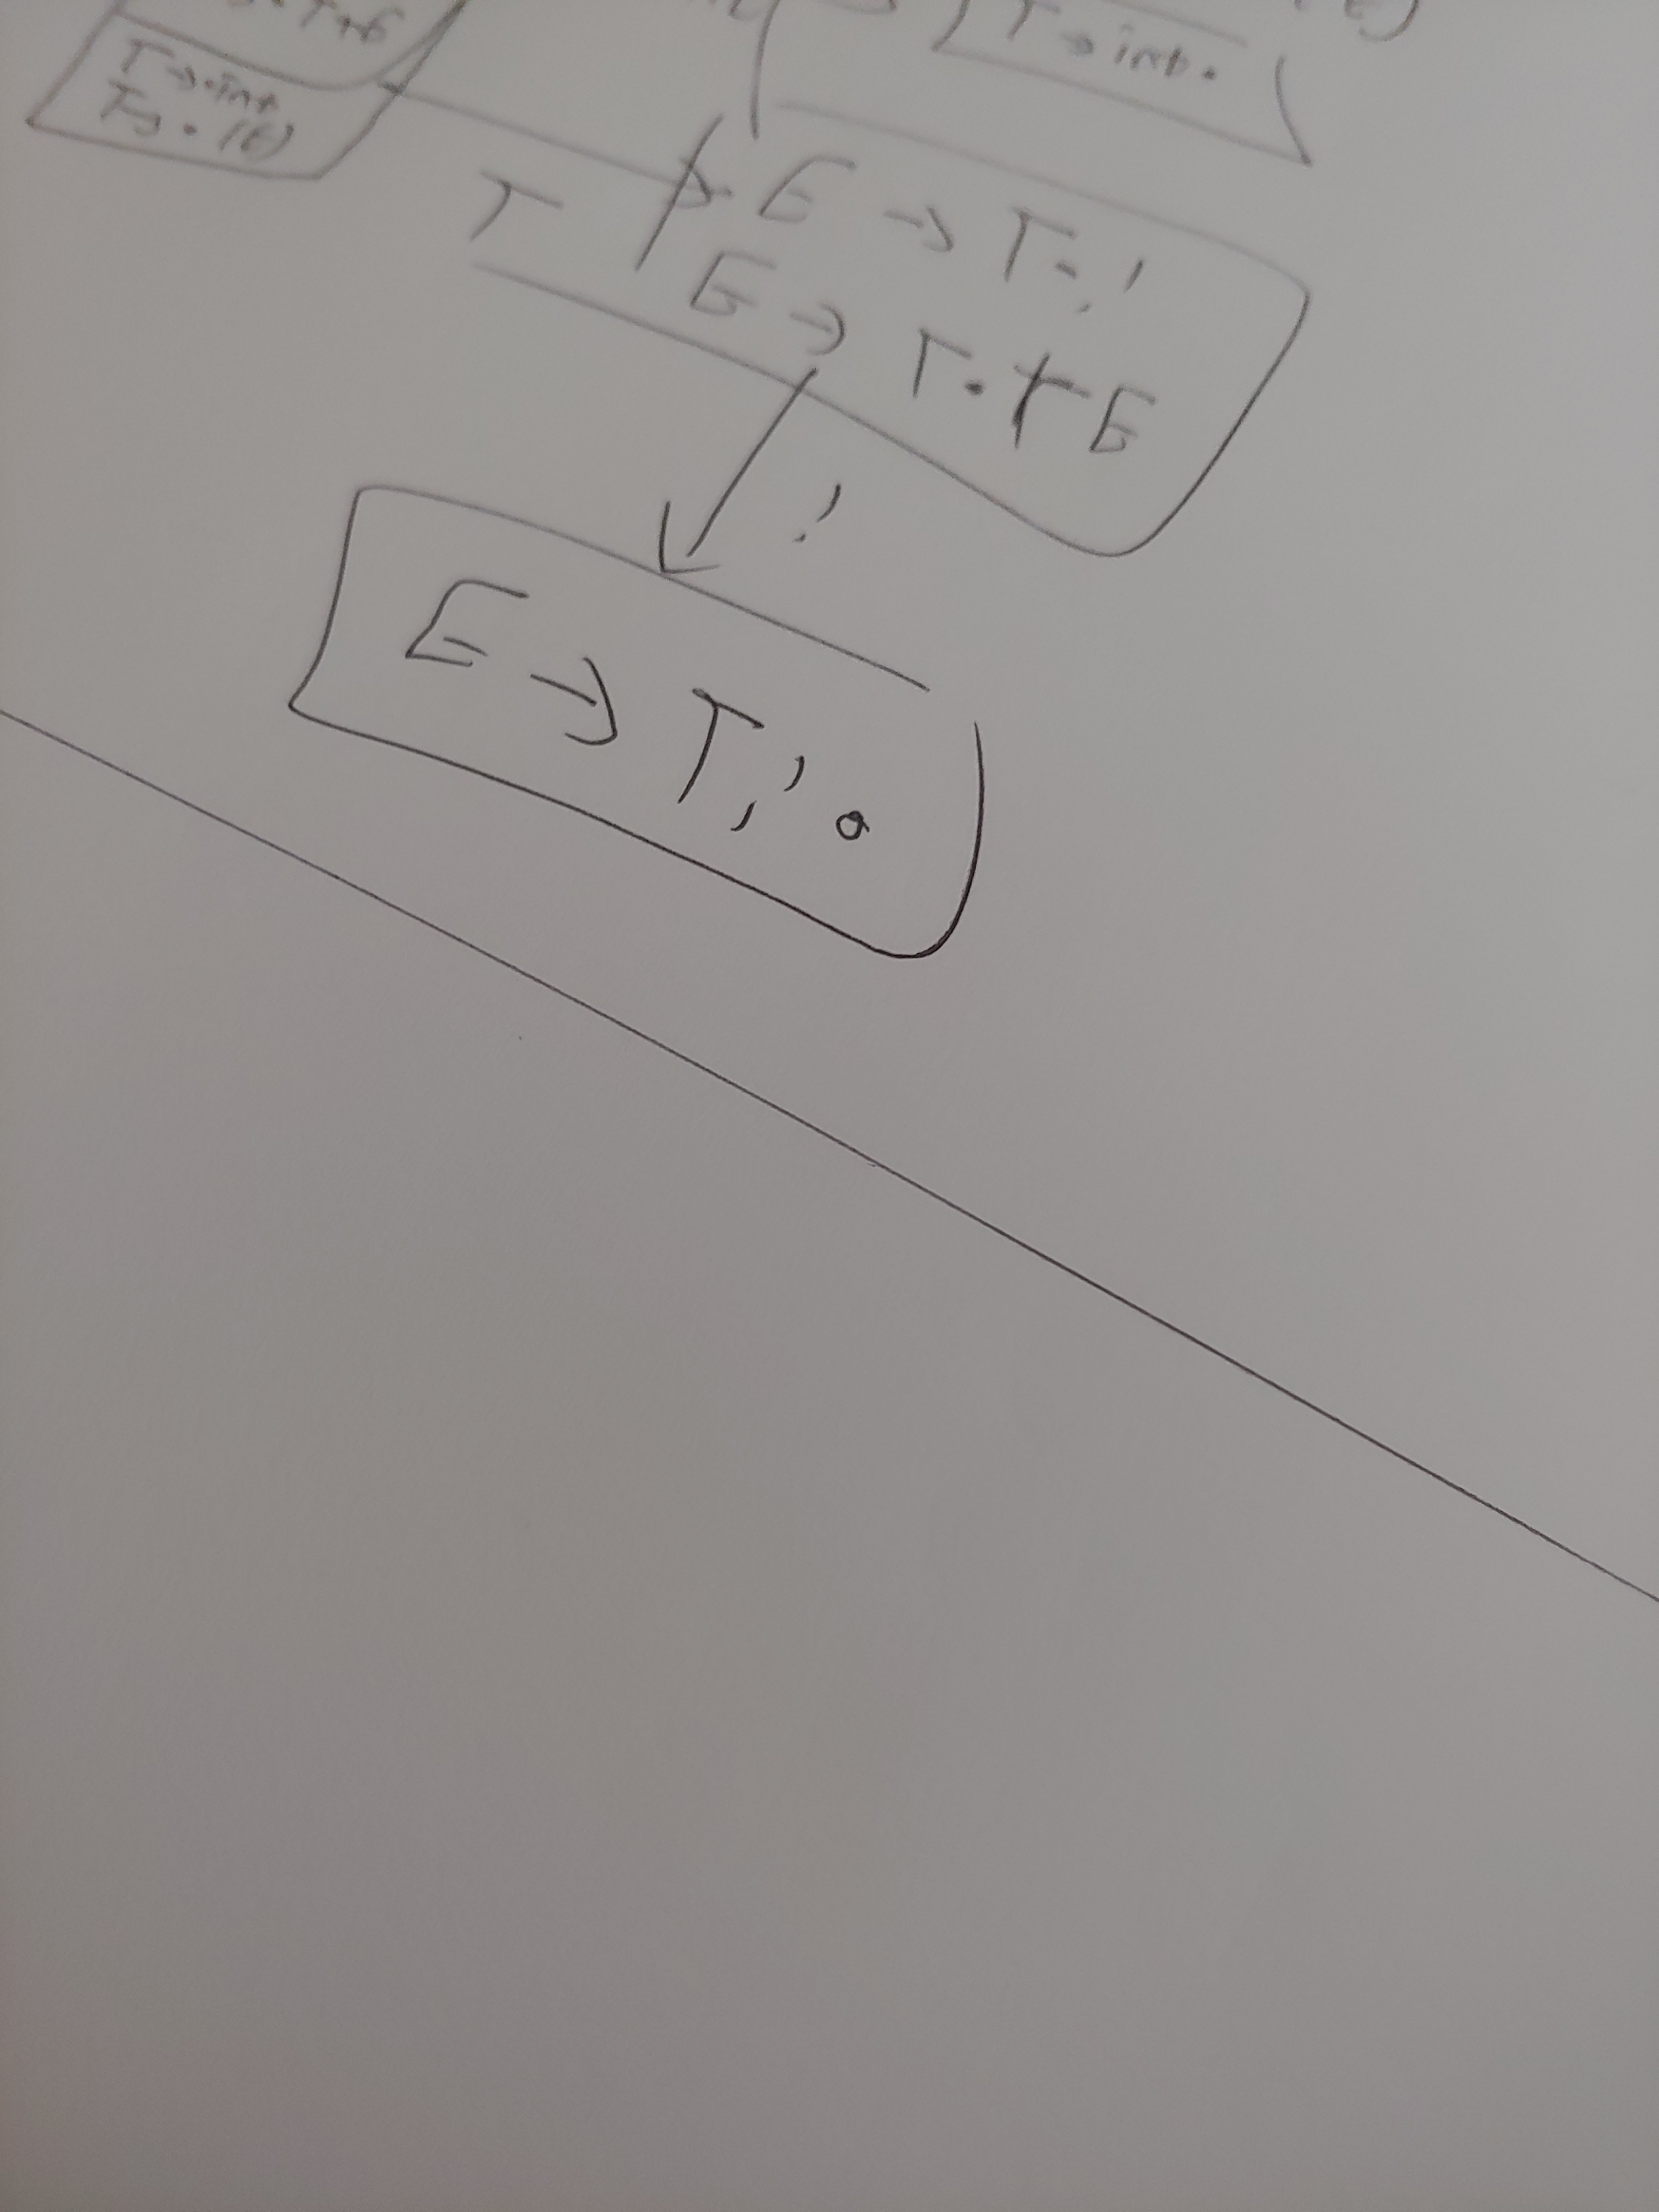 T+E
T→int.
T→.int
T→.(E)
T
E→T.;
E→T.+E
;
E→T;.